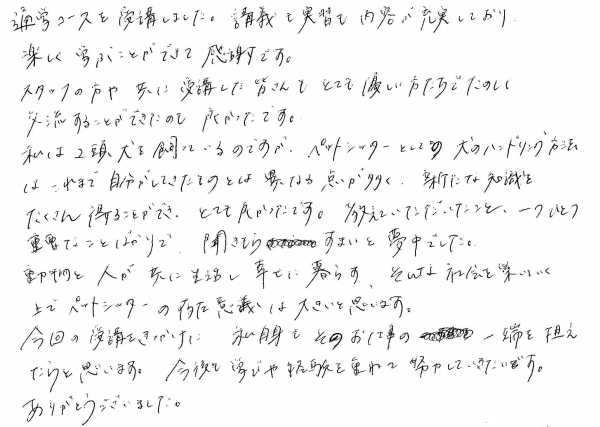 通学コースを受講しました。講義も実習も内容が充実しており、
楽しく学ぶことができて感謝です。
スタッフの方や共に受講した皆さんもとても優しい方たちでたのしく
交流することができたのも良かったです。
私は2頭犬を飼っているのですが、ペットシッターとしての犬のハンドリング方法
はこれまで自分がしてきたものとは異なる点が多く、新たな知識を
たくさん得ることができ、とても良かったです。教えていただいたこと、一つひとつ
重要なことばかりで、聞きもらすまいと夢中でした。
動物と人が共に生活し幸せに暮らす、そんな社会を築いていく
上でペットシッターの存在意義は大きいと思います。
今回の受講をきっかけに私自身もそのお仕事の一端を担え
たらと思います。今後も学びや経験を重ねて努力していきたいです。
ありがとうございました。